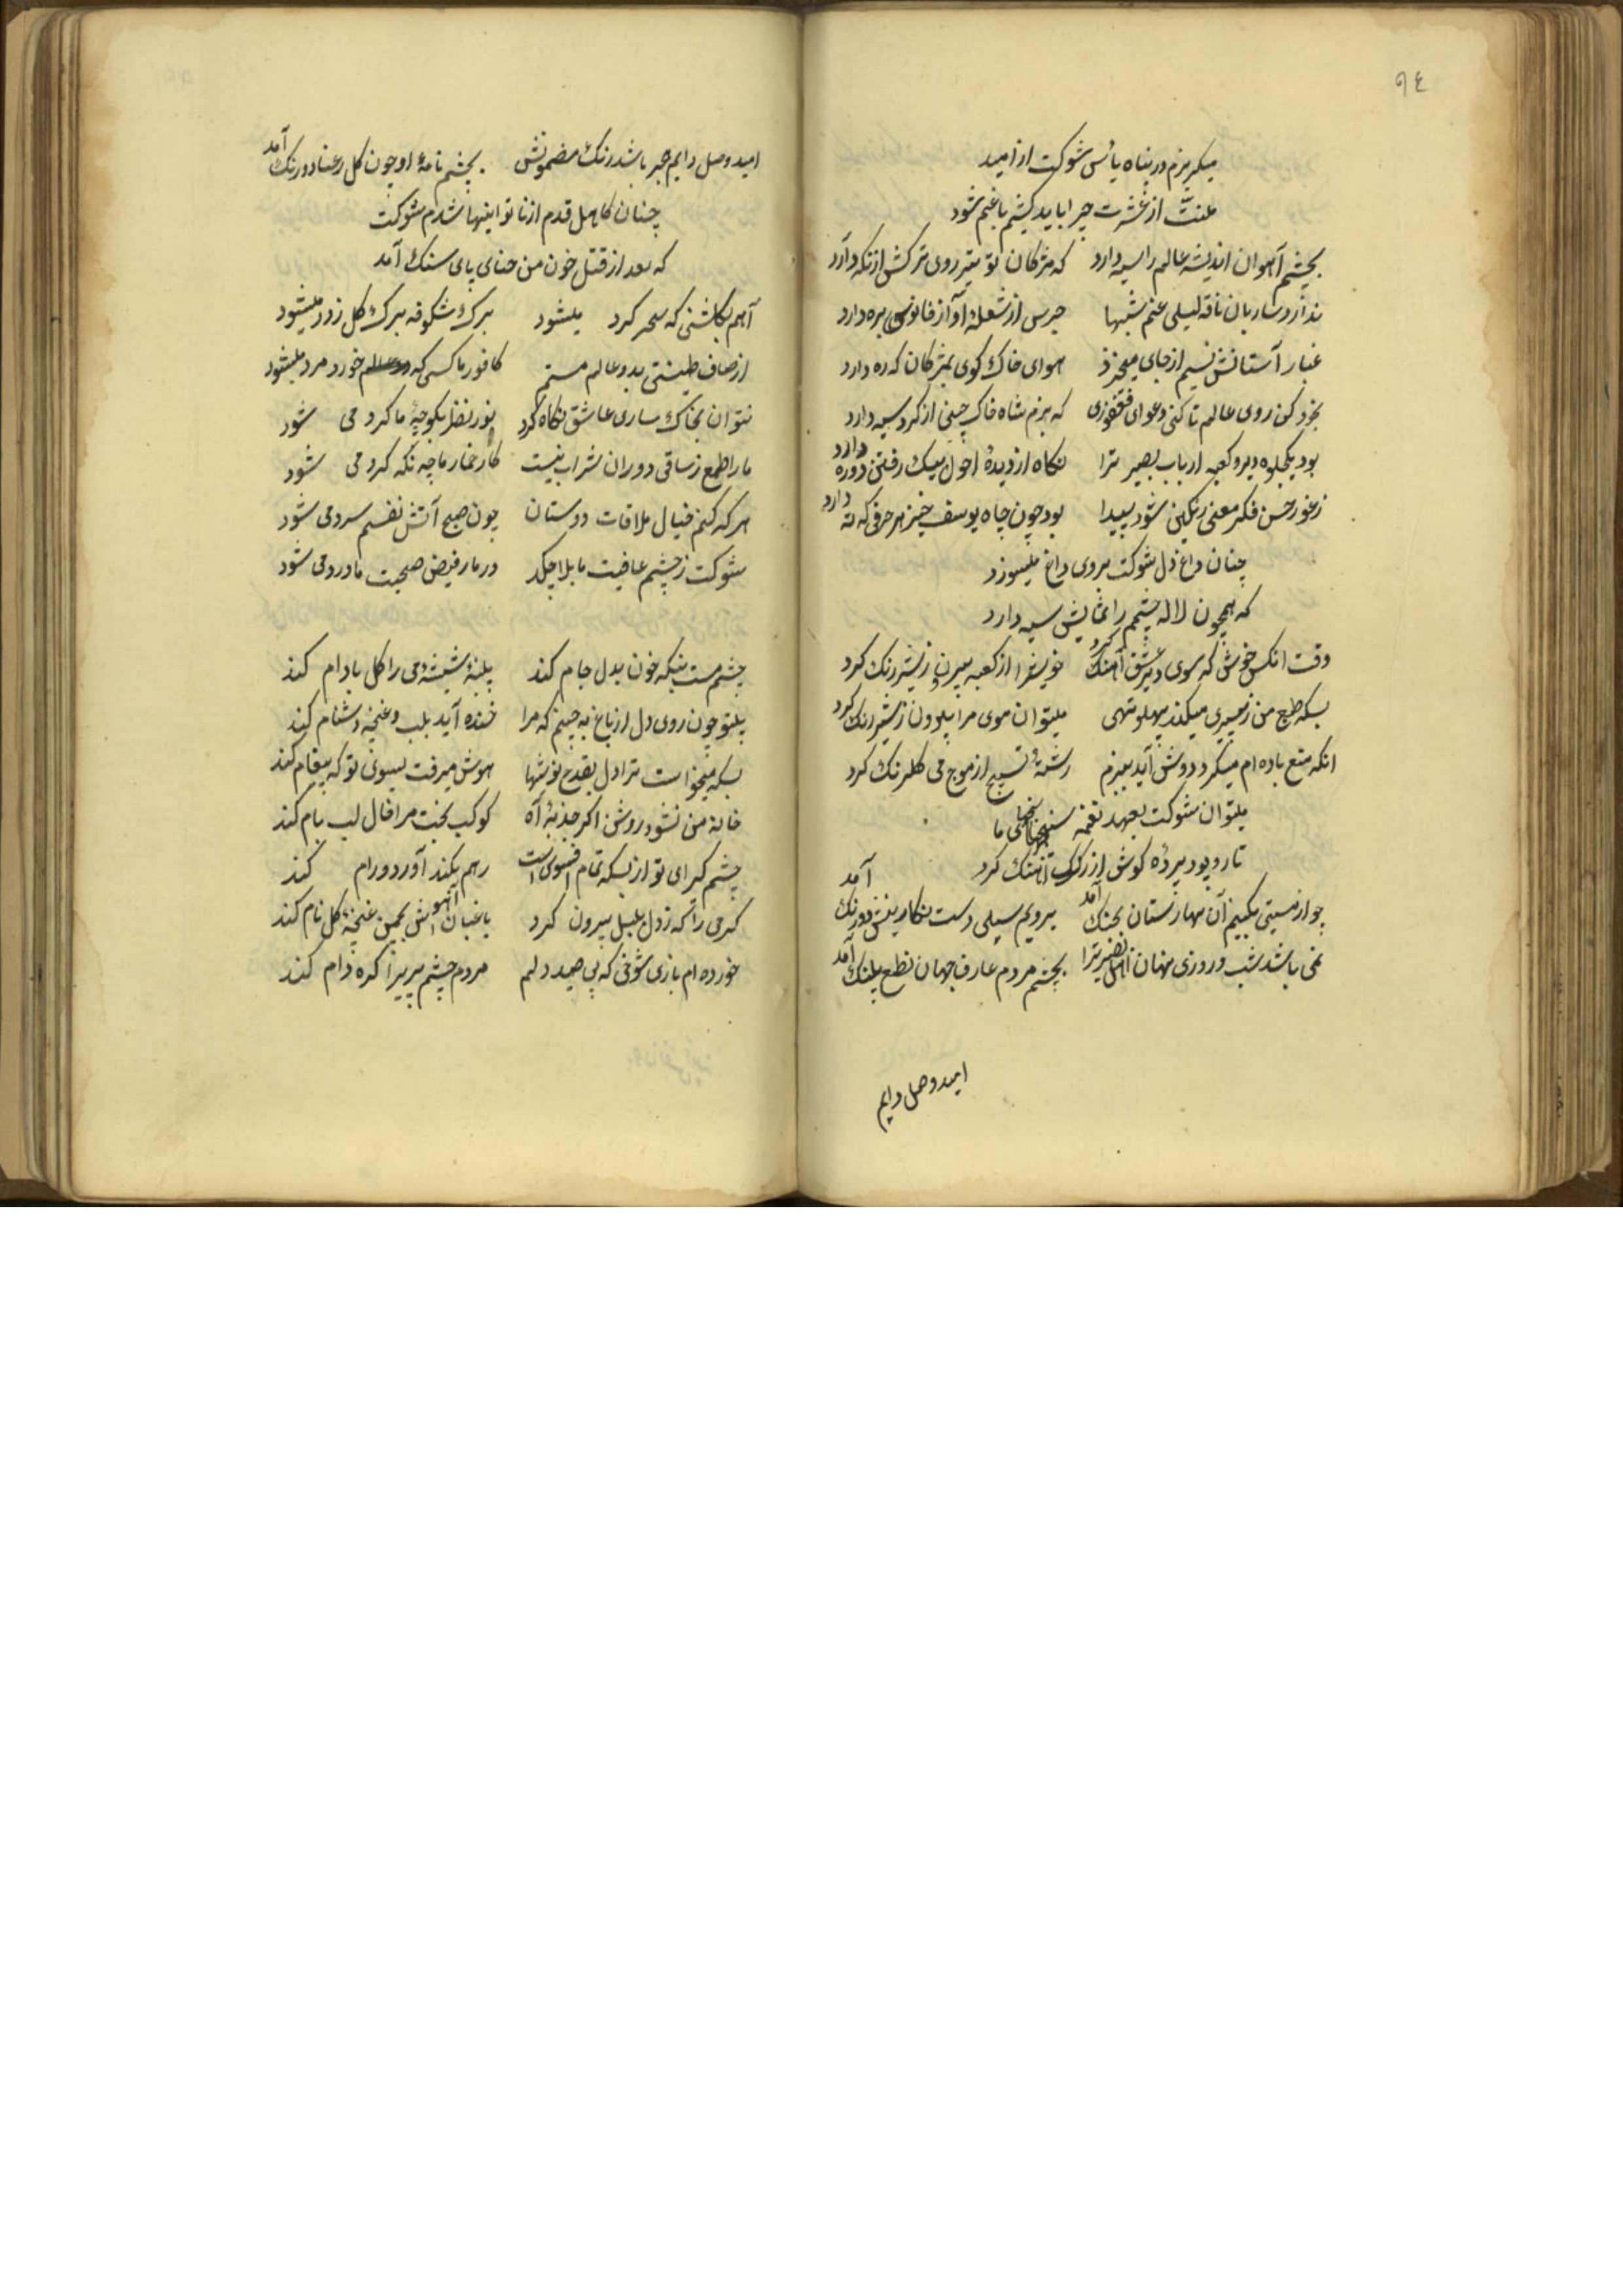 ٩٤
میکریزم در پناه یأس شوکت از امید
منت از عشرت چرا باید کشیم با غم شود
بچشم آهوان اندیشه عالم را سیه دارد که مژکان تو تیر روی ترکش از نکه دارد
ندارد ساربان ناقه لیلی غم شبها جرس از شعله آواز فانوسی بره دارد
غبار آستانش نسیم از جای میخیزد هوای خاک کوی بمژکان که ره دارد
بخود کن روی عالم تا کنی دعوای فغفوری که بزم شاه خاک چینی از کرد سیه دارد
بود یکجلوه دیر و کعبه ارباب بصیر ترا نکاه از دیدهٔ احول بیک رفتن دو ره دارد
زغور حسن فکر معنی رنکین شود پیدا بود چون چاه یوسف خیز هر حرفی که ته دارد
چنان داغ دل شوکت بروی داغ میسوزد
که همچون لاله چشمم را نمایش سیه دارد
وقت انکس خوش که سوی دیر عشق آهنک کرد خویش را از کعبه بیرون زیشتر رنک کرد
بسکه طبع من ز پیری میکند پهلو تهی میتوان موی مرا بیرون ز شیر رنک کرد
انکه منع باده ام میکرد دوش آمد ببزم رشتهٔ تسبیح از موج می کلرنک کرد
میتوان شوکت بعهد نغمه سنجیهای ما
تار و پود پردهٔ کوش از رک آهنک کرد
چو از مستی بکیم آن بهارستان بجنک آمد برویم سیلی دست نکارینش دو رنک آمد
نمی باشد شب و روزی نهان اهل بصیر ترا بچشم مردم عارف جهان نطع پلنک آمد
امید وصل دایم
امید وصل دایم هجر باشد رنک مضمونش بچشم نامهٔ او چون کل رعنا دو رنک آمد
چنان کاهل قدم از ناتوانیها شدم شوکت
که بعد از قتل خون من حنای پای سنک آمد
آهم بکلشنی که سحر کرد میشود برک شکوفه برک کل زرد میشود
از صاف طینتی بدو عالم مستم کافور ما کسی که خورد مرد میشود
نتوان بخاک ساری عاشق نکاه کرد نور نظر بکوچهٔ ما کرد می شود
ما را طمع ز ساقی دوران شراب نیست کار خمار ما چه نکه کرد می شود
هر که کنم خیال ملاقات دوستان چون صبح آتش نفسم سرد می شود
شوکت ز چشم عافیت ما بلا چکد درمان فیض صحبت ما درد می شود
چشم مست نیکه خون بدل جام کند پنبهٔ شیشهٔ می را کل بادام کند
بیتو چون روی دل از باغ به چینم که مرا خنده آید بلب و غنچه دشنام کند
بسکه میخواست ترا دل بقدح نوشیها هوش میرفت بسوی تو که پیغام کند
خانهٔ من نشود روشن اکر جذبهٔ آه کوکب بخت مرا خال لب بام کند
چشم کیرای تو از بسکه تمام افسونست رهم بکند آورد و رام کند
کرمی را که ز دل بلبل بیرون کرد باغبان آتش بچمن غنچهٔ کل نام کند
خورده ام بازی شوخی که پی صید دلم مردم چشم پریرا کره دام کند